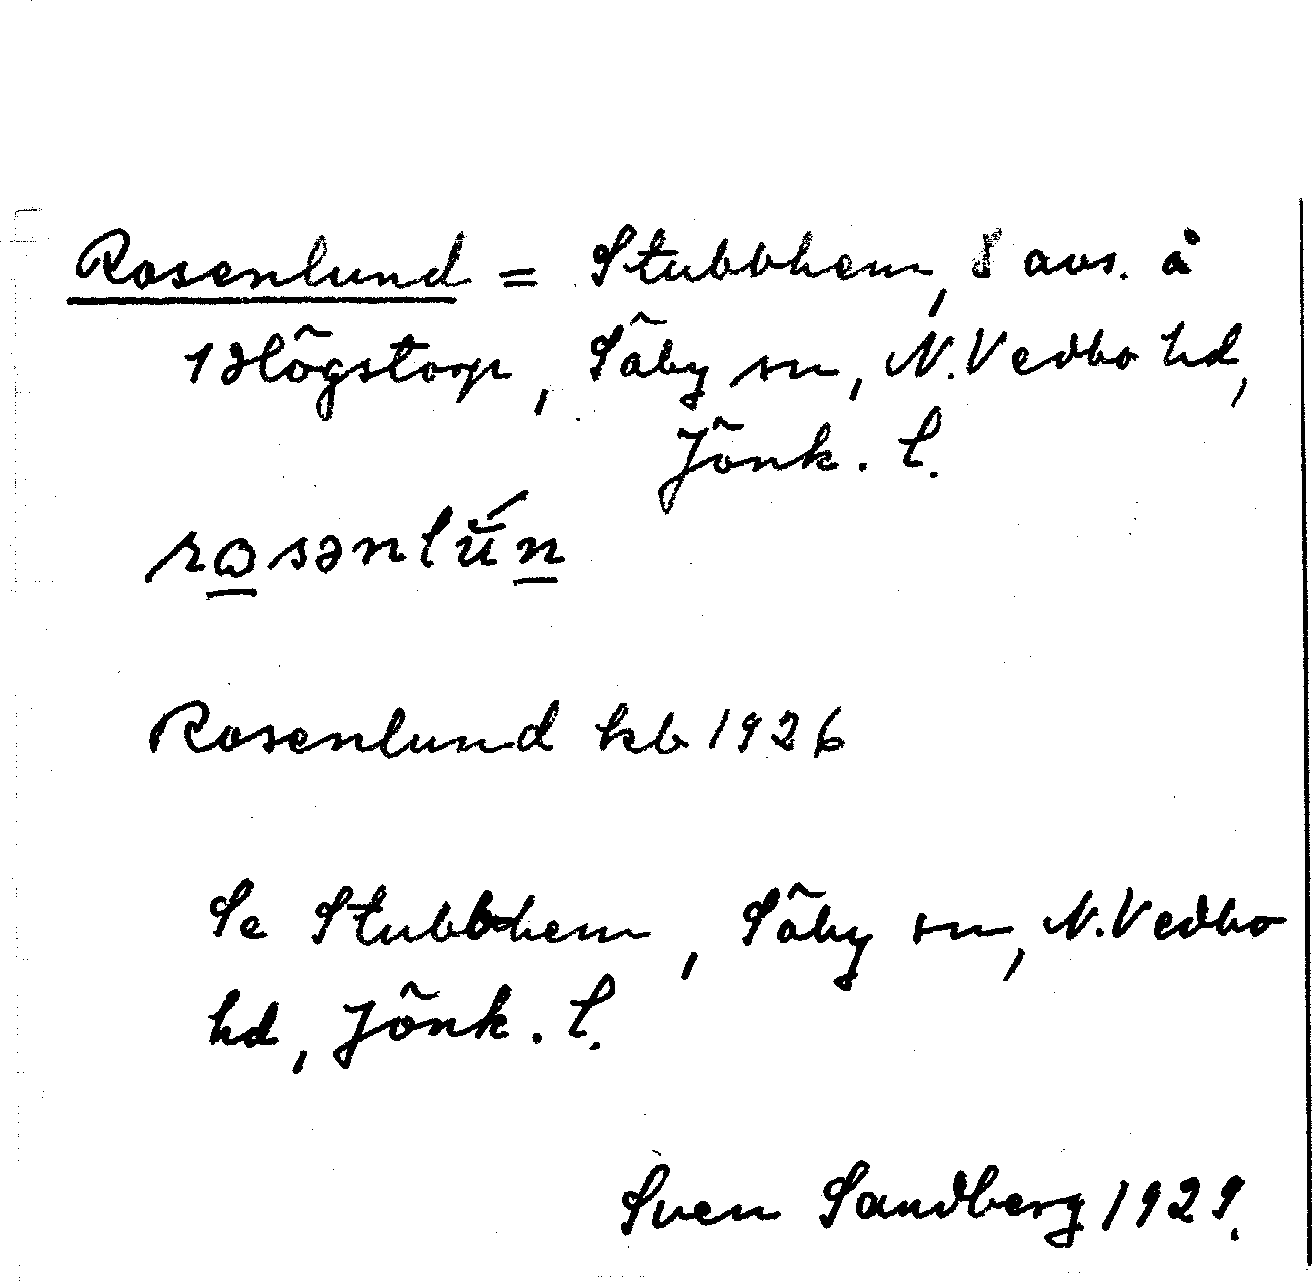 Rosenlund = Stubbhem, 8 avs. å
1 Högstorp, Säby sn, N. Vedbo hd,
Jönk. l.
rosənlún
Rosenlund kb 1926
Se Stubbhem, Säby sn, N. Vedbo
hd, Jönk. l.
Sven Sandberg 1929.